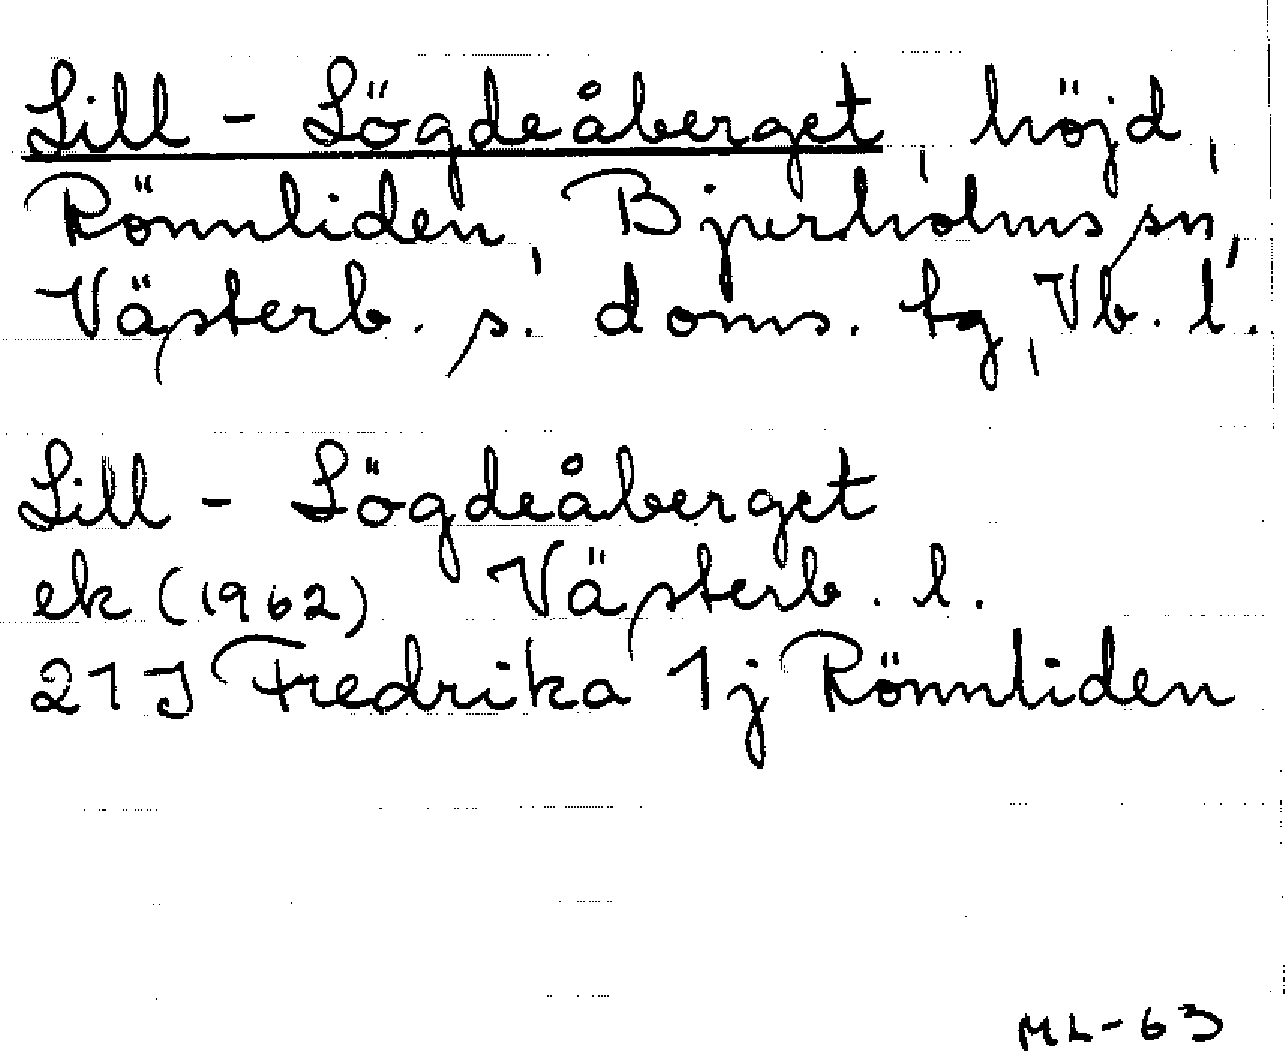 Lill - Lögdeåberget, höjd,
Rönnliden, Bjurholms sn,
Västerb. s. doms. tg, Vb. l.
Lill - Lögdeåberget
ek (1962) Västerb. l.
21J Fredrika 1j Rönnliden
ML-63